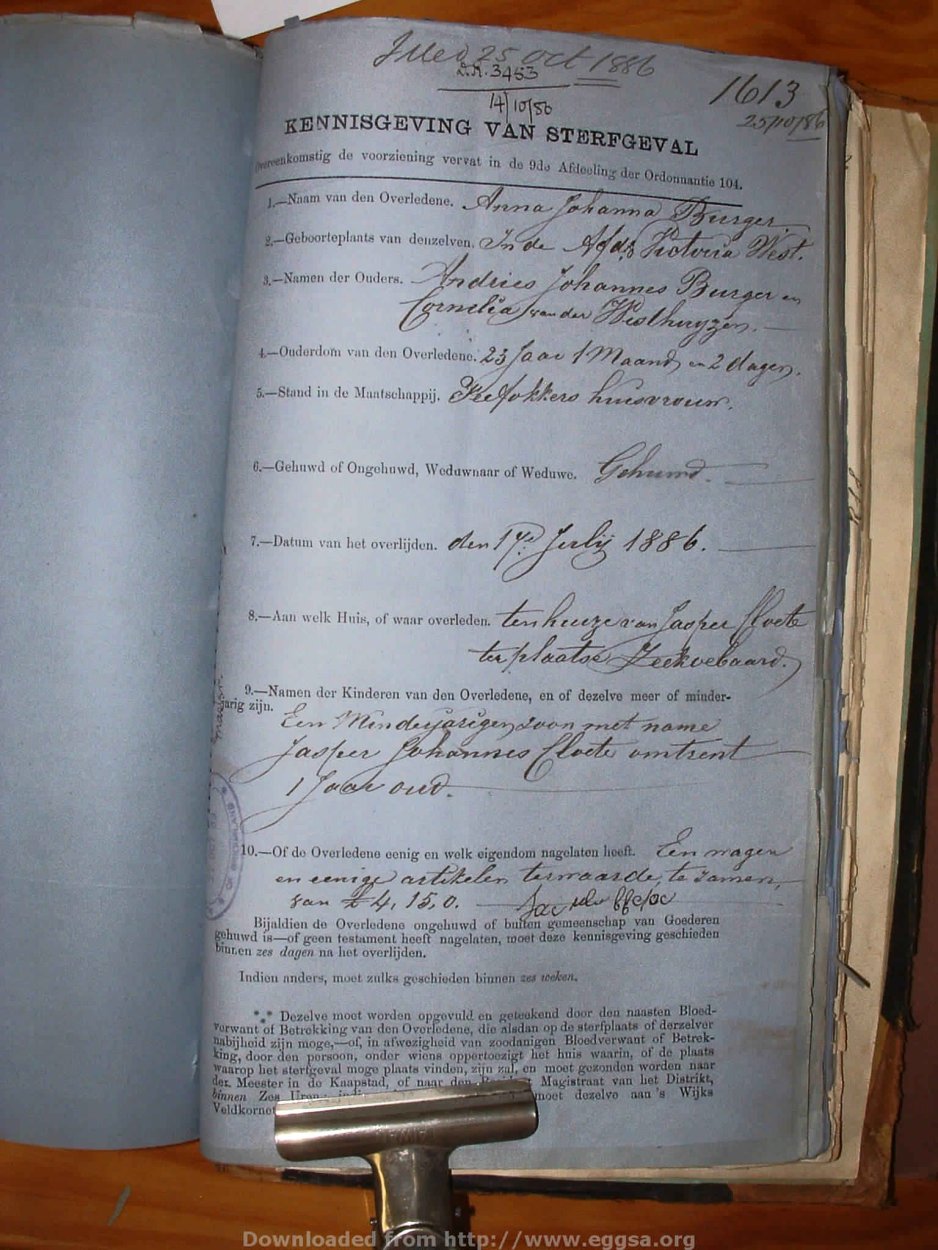 Filed 25 Oct 1886
D.N. 3453
14/10/86
1613
25/10/86
KENNISGEVING VAN STERFGEVAL
Overeenkomstig de voorziening vervat in de 9de Afdeeling der Ordonnantie 104.
1.—Naam van den Overledene. Anna Johanna Burger.
2.—Geboorteplaats van denzelven. In de Afdg Victoria West.
3.—Namen der Ouders. Andries Johannes Burger en
Cornelia van der Westhuyzen.
4.—Ouderdom van den Overledene. 23 Jaar 1 Maand en 2 dagen.
5.—Stand in de Maatschappij. Veefokkers huisvrouw.
6.—Gehuwd of Ongehuwd, Weduwnaar of Weduwe. Gehuwd.
7.—Datum van het overlijden. den Julij 1886.
8.—Aan welk Huis, of waar overleden. ten huize van Jasper Cloete
ter plaatse
9.—Namen der Kinderen van den Overledene, en of dezelve meer of minder-
jarig zijn.
Een Minderjarigen zoon met name
Jasper Johannes Cloete omtrent
1 Jaar oud.
10.—Of de Overledene eenig en welk eigendom nagelaten heeft. Een wagen
en eenige artikelen ter waarde, te zamen,
van £4, 15, 0.
Bijaldien de Overledene ongehuwd of buiten gemeenschap van Goederen
gehuwd is—of geen testament heeft nagelaten, moet deze kennisgeving geschieden
binnen zes dagen na het overlijden.
Indien anders, moet zulks geschieden binnen zes weken.
*** Dezelve moet worden opgevuld en geteekend door den naasten Bloed-
verwant of Betrekking van den Overledene, die alsdan op de sterfplaats of derzelver
nabijheid zijn moge,—of, in afwezigheid van zoodanigen Bloedverwant of Betrek-
king, door den persoon, onder wiens oppertoezigt het huis waarin, of de plaats
waarop het sterfgeval moge plaats vinden, zijn zal, en moet gezonden worden naar
den Meester in de Kaapstad, of naar den Magistraat van het Distrikt,
binnen Zes Uren moet dezelve aan 's Wijks
Veldkornet
Downloaded from http://www.eggsa.org